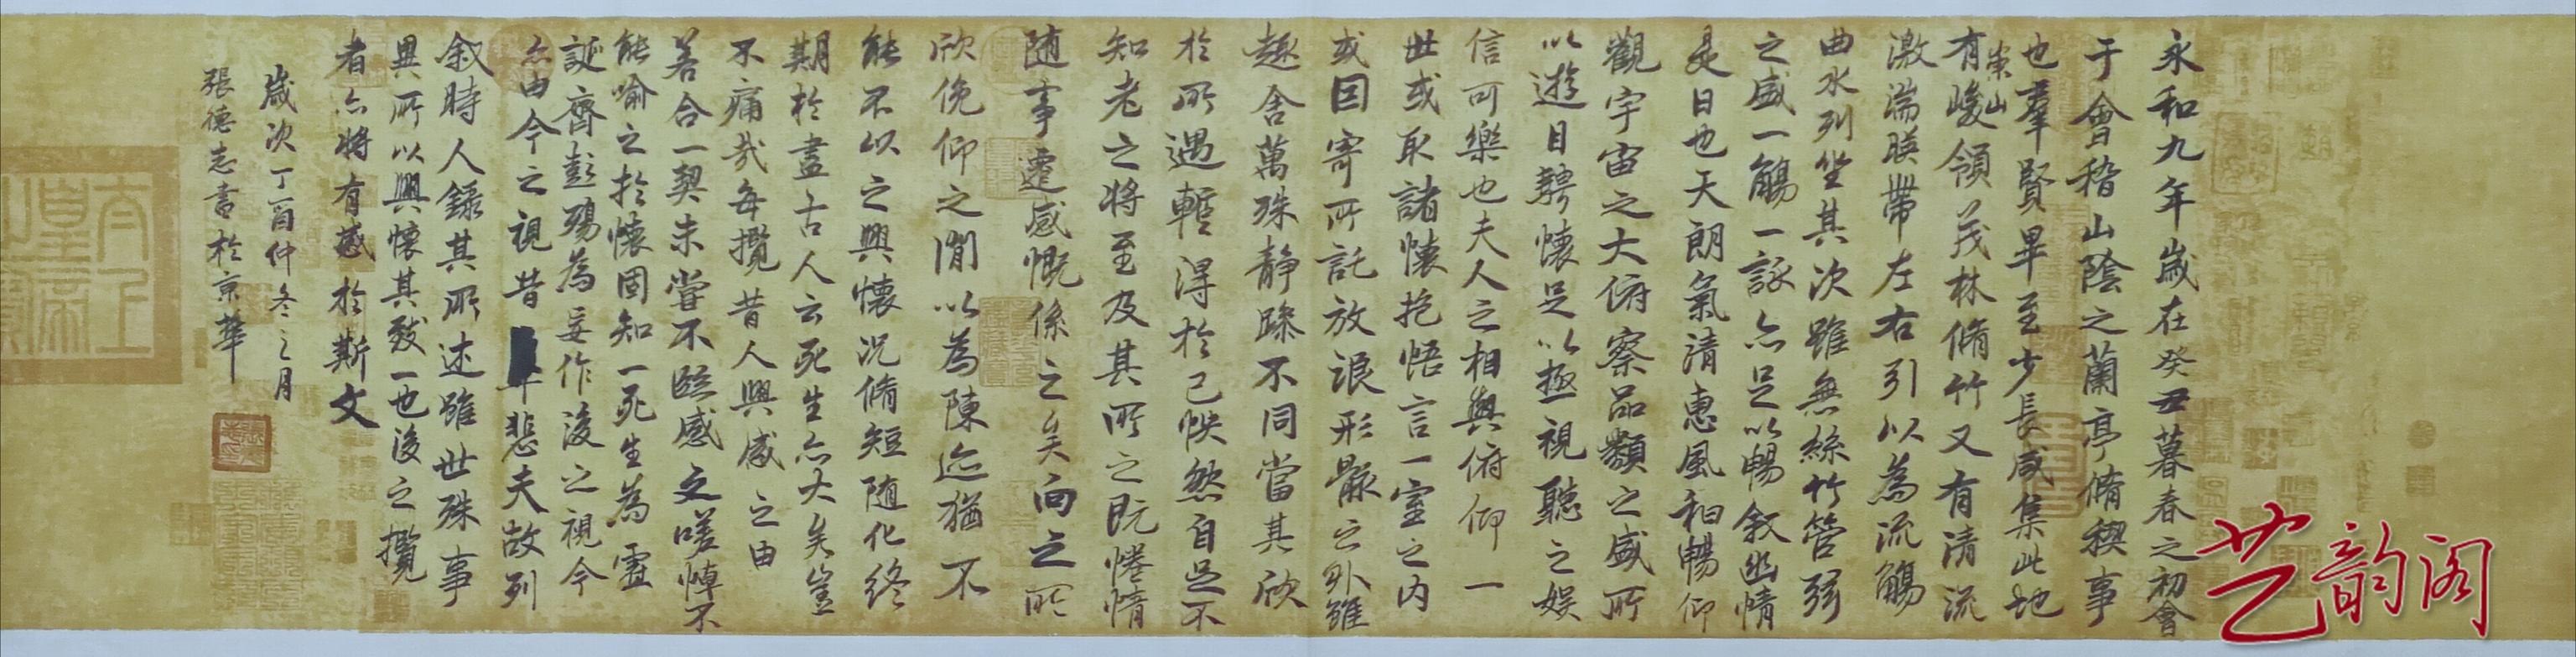 永和九年歲在癸丑暮春之初會
于會稽山陰之蘭亭脩稧事
也羣賢畢至少長咸集此地
有崇山峻領茂林脩竹又有清流
激湍暎帶左右引以為流觴
曲水列坐其次雖無絲竹管弦
之盛一觴一詠亦足以暢敘幽情
是日也天朗氣清惠風和暢仰
觀宇宙之大俯察品類之盛所
以遊目騁懷足以極視聽之娛
信可樂也夫人之相與俯仰一
世或取諸懷抱悟言一室之內
或因寄所託放浪形骸之外雖
趣舍萬殊靜躁不同當其欣
於所遇蹔得於己怏然自足不
知老之將至及其所之既惓情
隨事遷感慨係之矣向之所
欣俛仰之閒以為陳迹猶不
能不以之興懷況脩短隨化終
期於盡古人云死生亦大矣豈
不痛哉每攬昔人興感之由
若合一契未嘗不臨文嗟悼不
能喻之於懷固知一死生為虛
誕齊彭殤為妄作後之視今
亦由今之視昔悲夫故列
敘時人錄其所述雖世殊事
異所以興懷其致一也後之攬
者亦將有感於斯文
歲次丁酉仲冬之月
張德志書於京華
艺韵阁